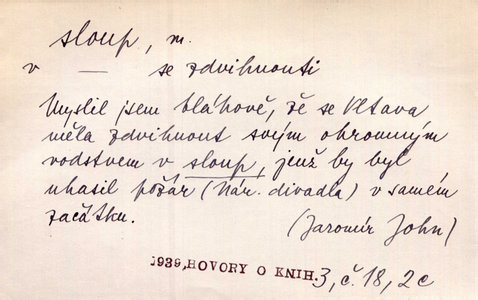 sloup, m.
v — se zdvihnouti
Myslil jsem bláhově, že se Vltava
měla zdvihnout svým ohromným
vodstvem v sloup, jenž by byl
uhasil požár (Nár. divadla) v samém
začátku.
(Jaromír John)
1939, HOVORY O KNIH. 3, č. 18, 2c